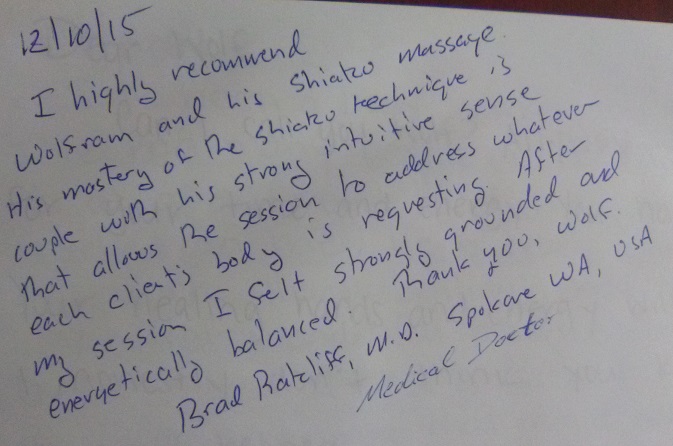 12/10/15
I highly recommend
Wolfram and his Shiatzo massage.
His mastery of the shiatzo technique is
couple with his strong intuitive sense
that allows the session to address whatever
each client's body is requesting. After
my session I felt strongly grounded and
energetically balanced. Thank you, Wolf.
Brad Ratcliff, M.D. Spokane WA, USA
Medical Doctor